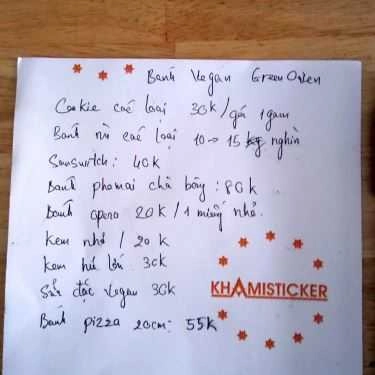 Bánh Vegan Green Onken
Cookie các loại 30k/gói 1 gam
Bánh mì các loại 10 → 15 nghìn
Sanswitch: 40k
Bánh phomai chà bông: 80k
Bánh opera 20k/1 miếng nhỏ.
Kem nhỏ / 20k
Kem hủ lớn 30k
Sữa đặc Vegan 30k
KHAMISTICKER
Bánh pizza 20cm: 55k